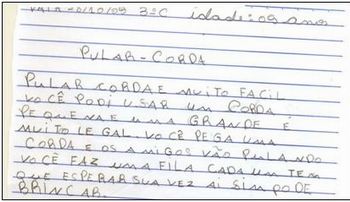 DATA 20/10/09 3ºC idade: 09 anos
PULAR-CORDA
PULAR CORDA E MUITO FACIL
VOCÊ PODI USAR UM CORDA
PEQUENA E UMA GRANDE É
MUITO LE GAL. VOCÊ PEGA UMA
CORDA E OS AMIGOS VÃO PULANDO
VOCÊ FAZ UMA FILA CADA UM TEM
QUE ESPERAR SUA VEZ AI SIM PODE
BRINCAR.